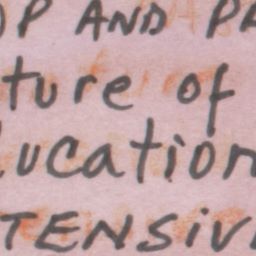 OP AND PA
ture of
ducation
TENSIV